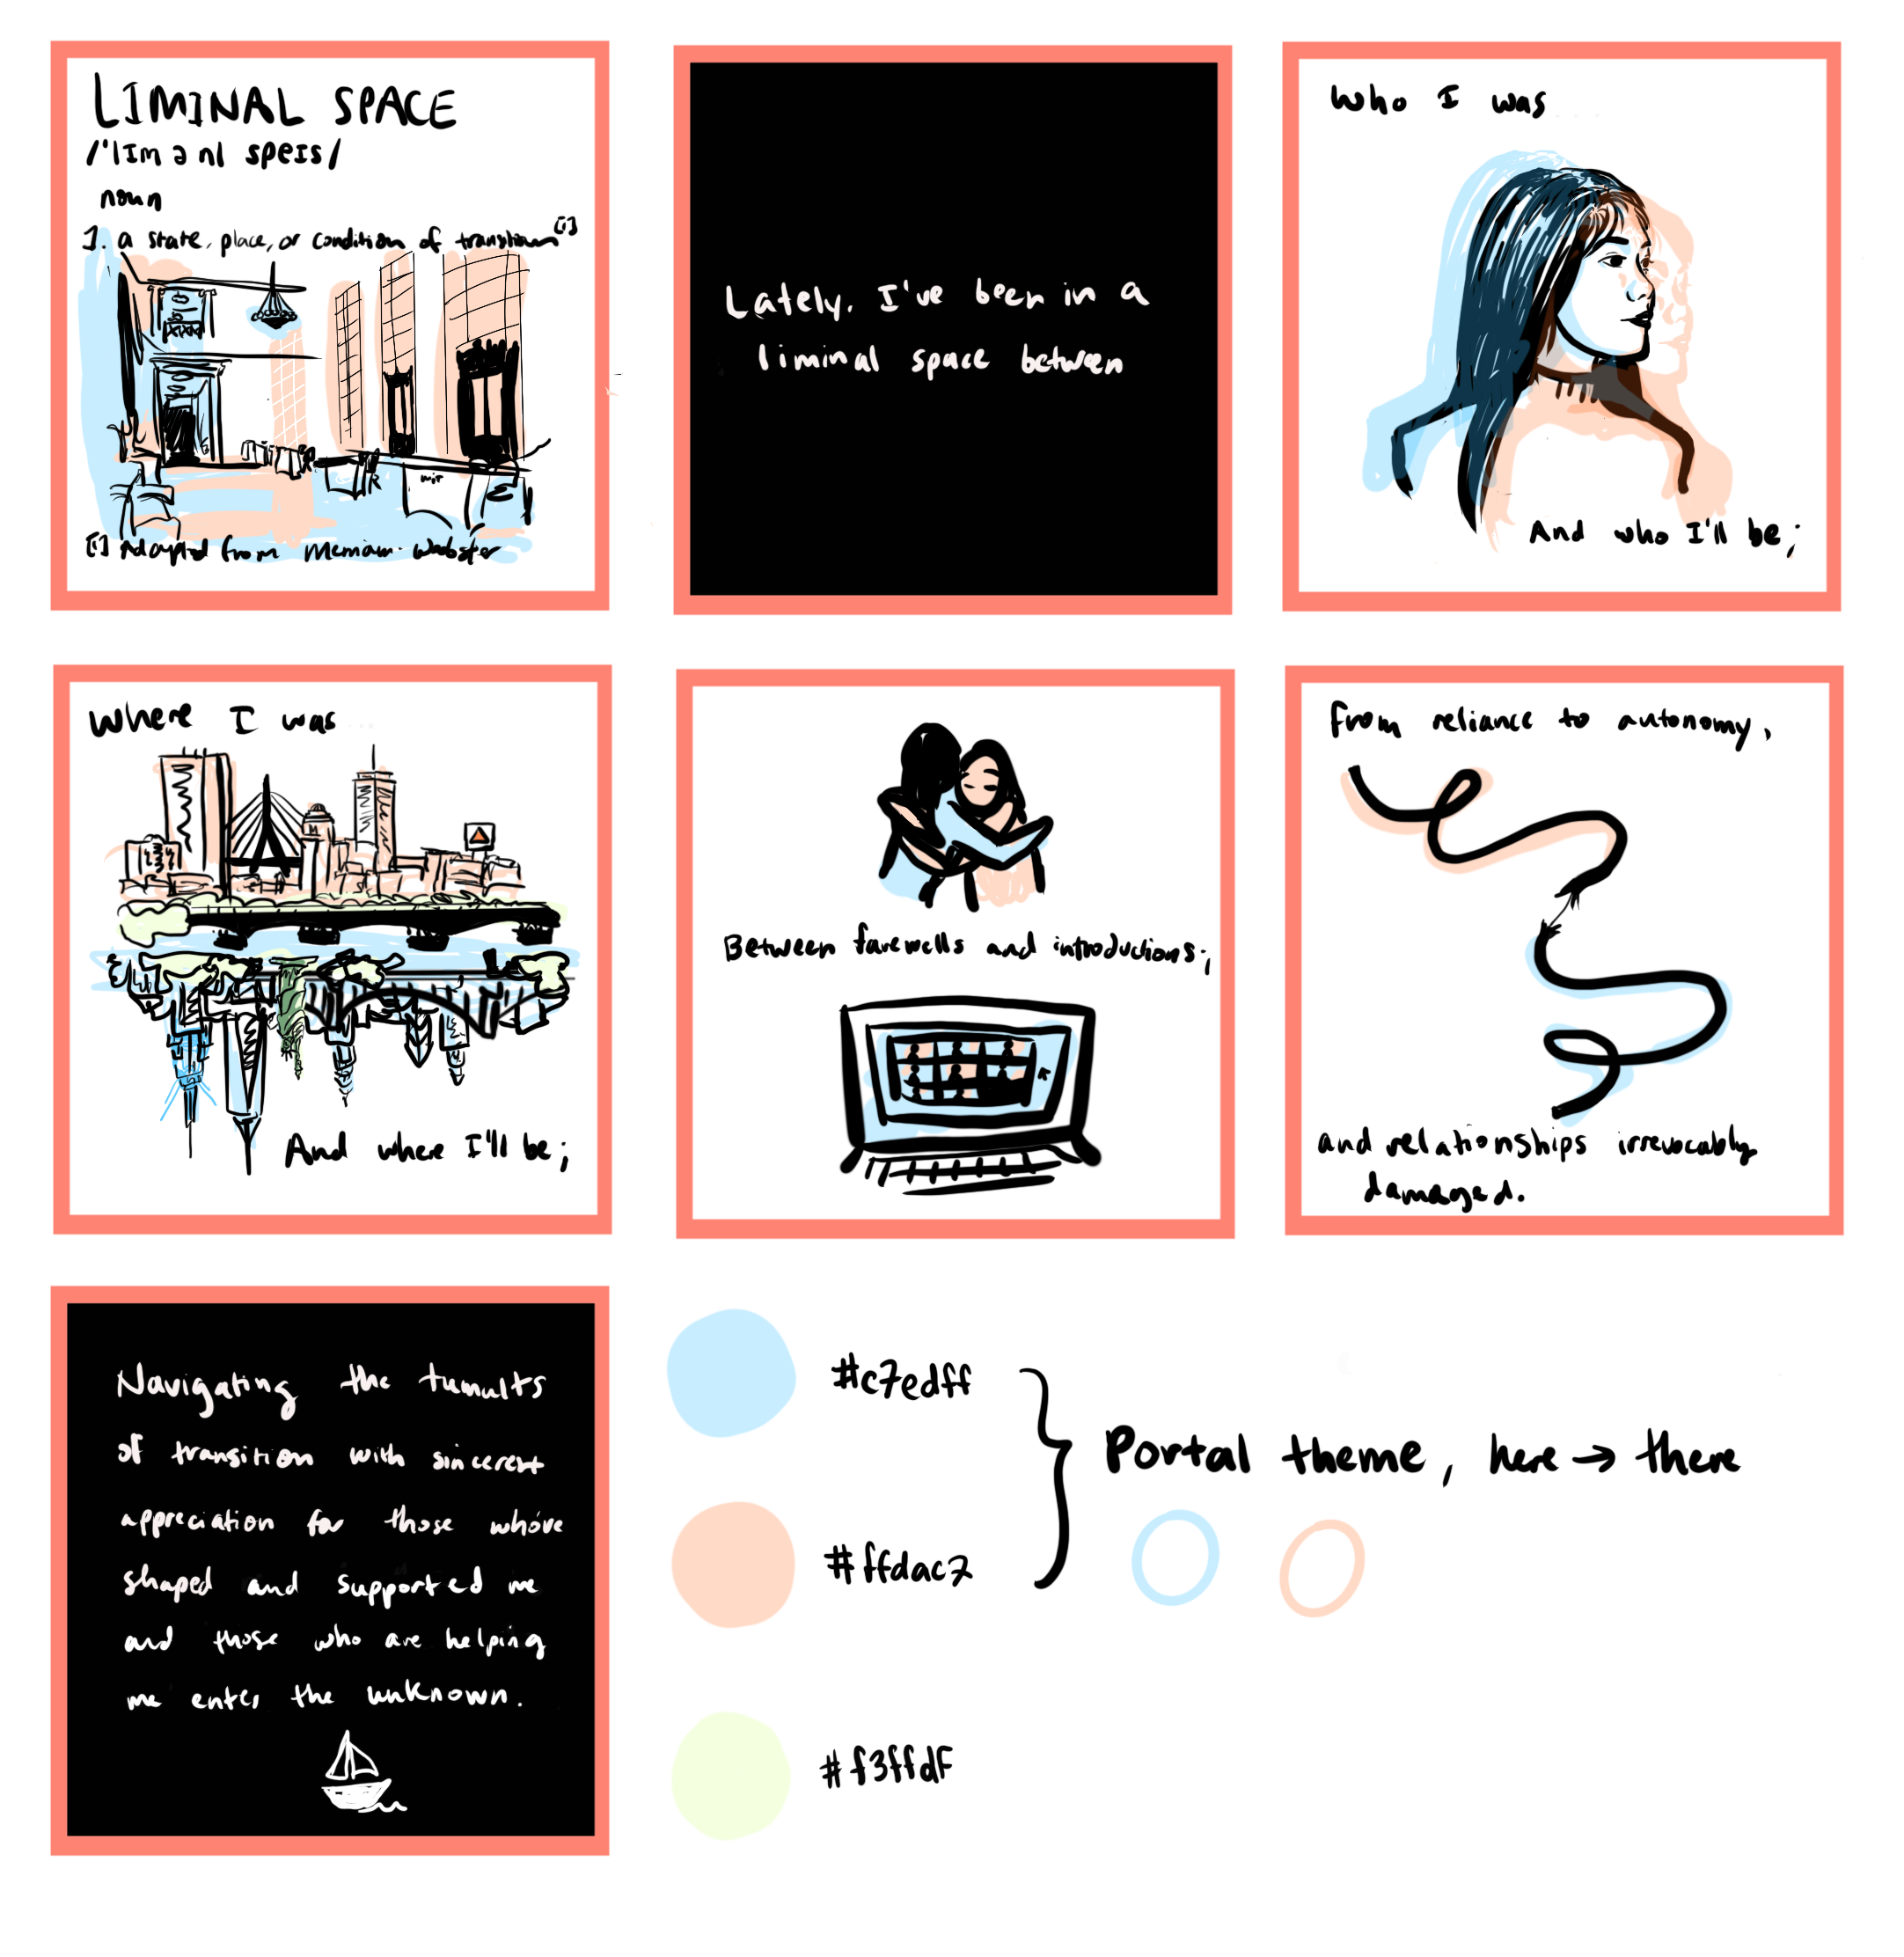 LIMINAL SPACE
/'lɪmənl speɪs/
noun
1. a state, place, or condition of transition[1]
MIT
[1] Adapted from Merriam-Webster
Lately, I've been in a
liminal space between
Who I was
And who I'll be;
Where I was
And where I'll be;
Between farewells and introductions;
From reliance to autonomy,
and relationships irrevocably
damaged.
Navigating the tumults
of transition with sincerest
appreciation for those who've
shaped and supported me
and those who are helping
me enter the unknown.
#c7edff
#ffdac7
#f3ffdf
Portal theme, here → there